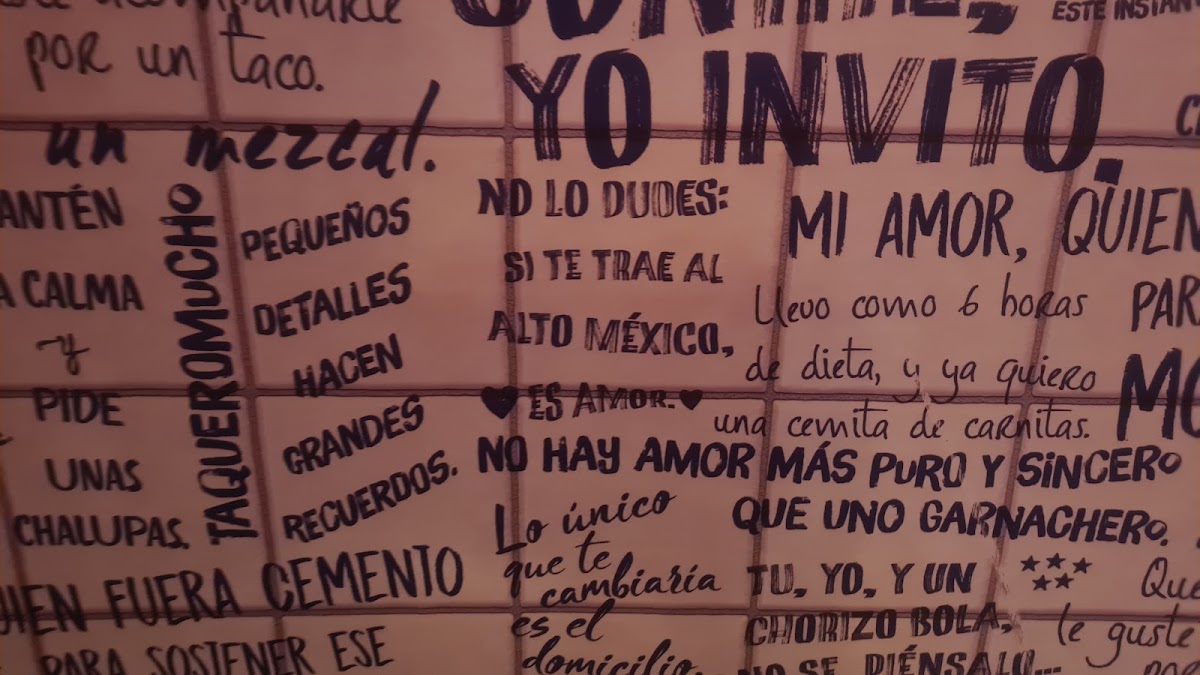 por un taco.
un mezcal.
YO INVITO.
CALMA
y
PIDE
UNAS
CHALUPAS.
TAQUEROMUCHO
PEQUEÑOS
DETALLES
HACEN
GRANDES
RECUERDOS.
FUERA CEMENTO
PARA SOSTENER ESE
NO LO DUDES:
SI TE TRAE AL
ALTO MÉXICO,
ES AMOR.
MI AMOR, QUIEN
Llevo como 6 horas
de dieta, y ya quiero
una cemita de carnitas.
NO HAY AMOR MÁS PURO Y SINCERO
QUE UNO GARNACHERO.
Lo único
que te
cambiaría
es el
domicilio.
TU, YO, Y UN
CHORIZO BOLA,
NO SE, PIÉNSALO...
le guste